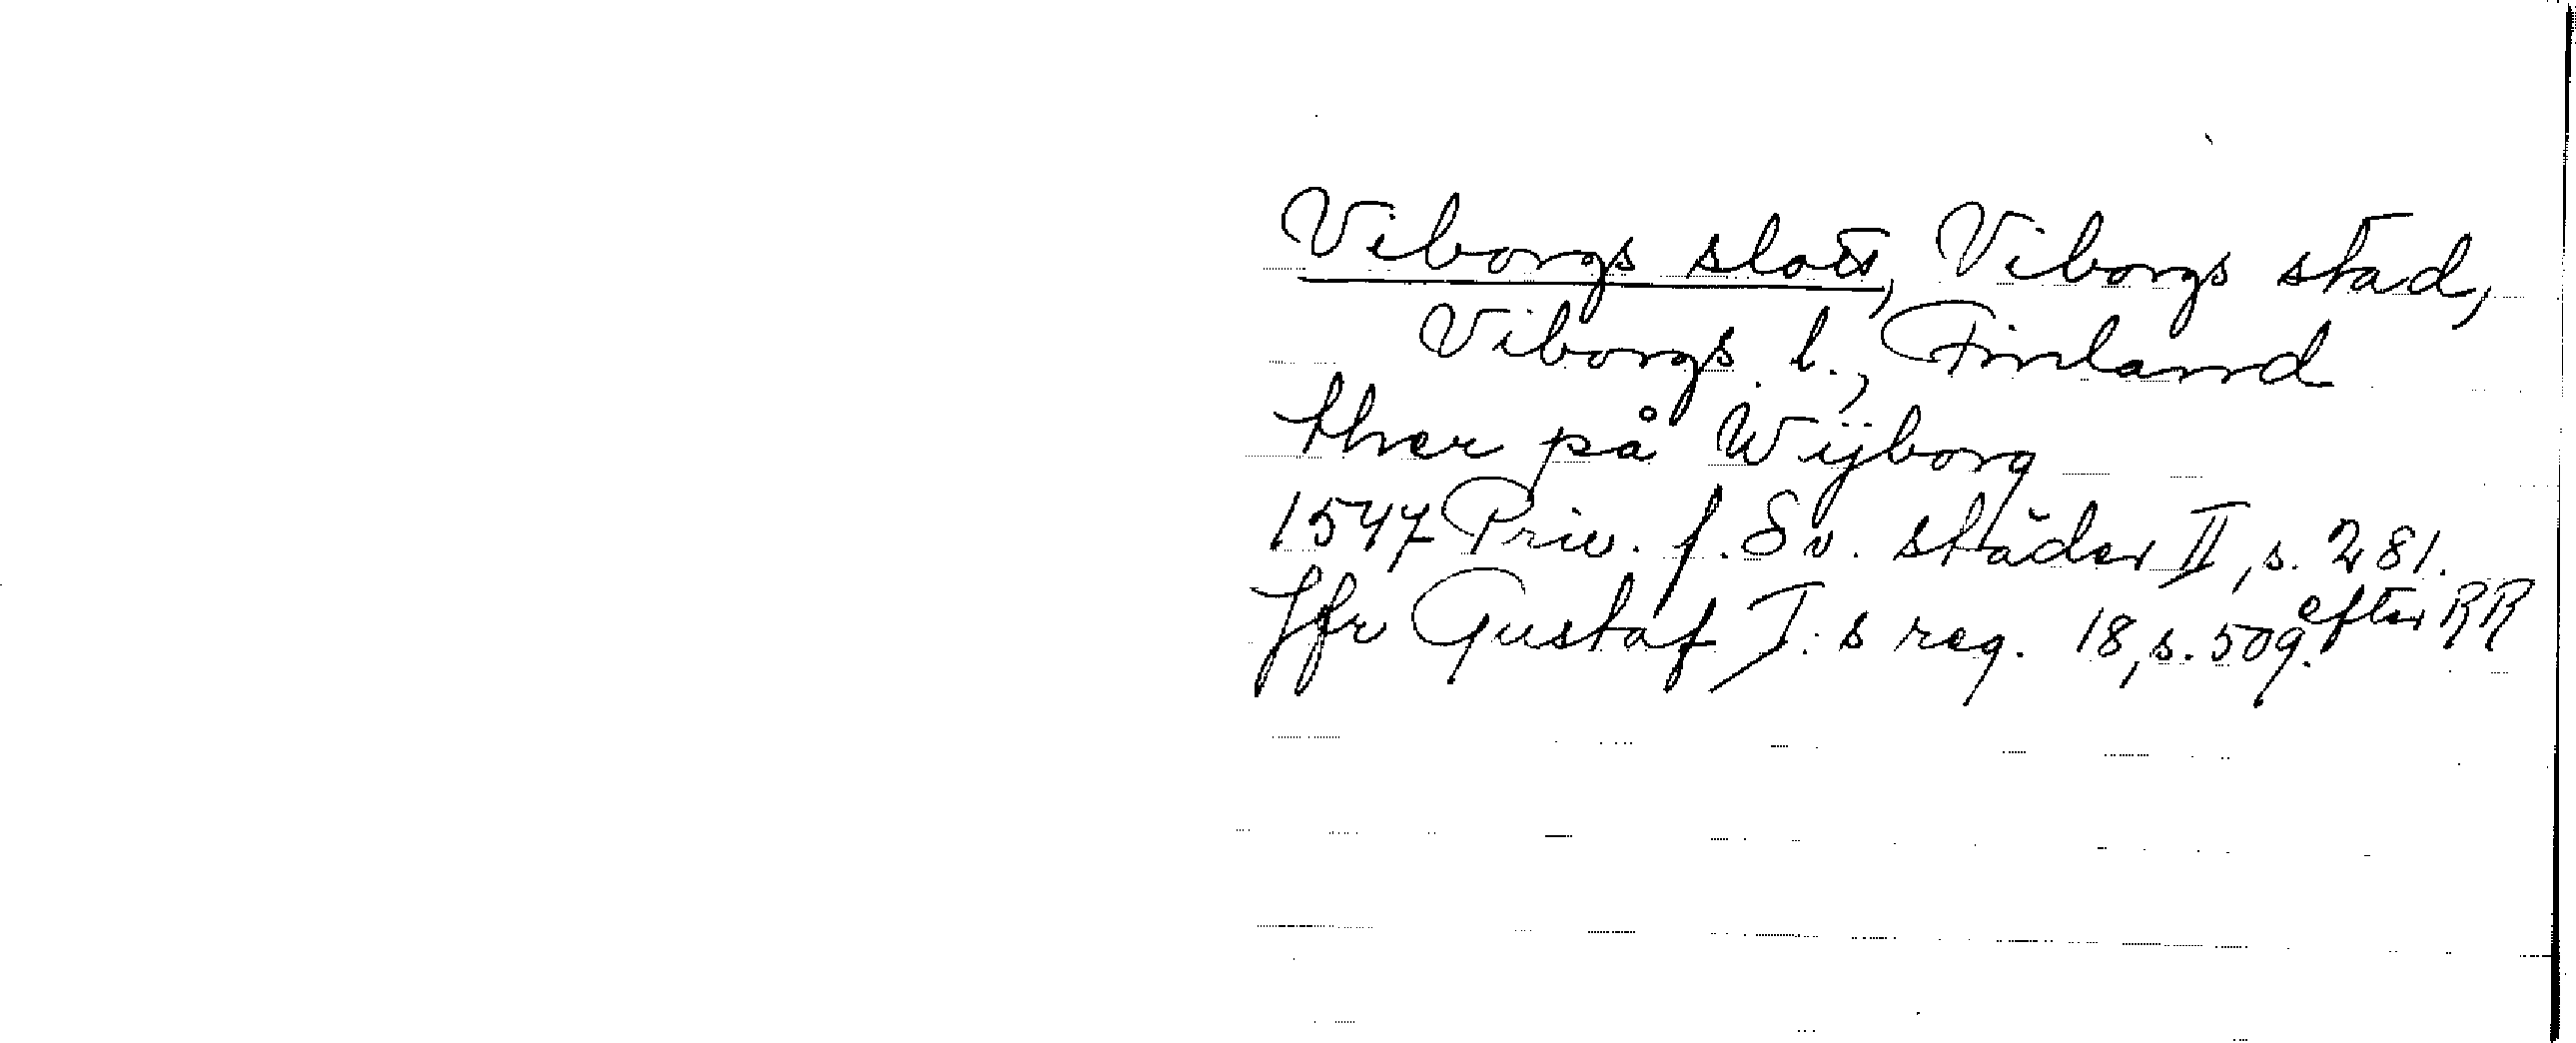 Viborgs slott, Viborgs stad,
Viborgs l., Finland
ther på Wijborg
1547 Priv. f. Sv. städer II, s. 281.
Jfr Gustaf I:s reg. 18, s. 509. efter RR